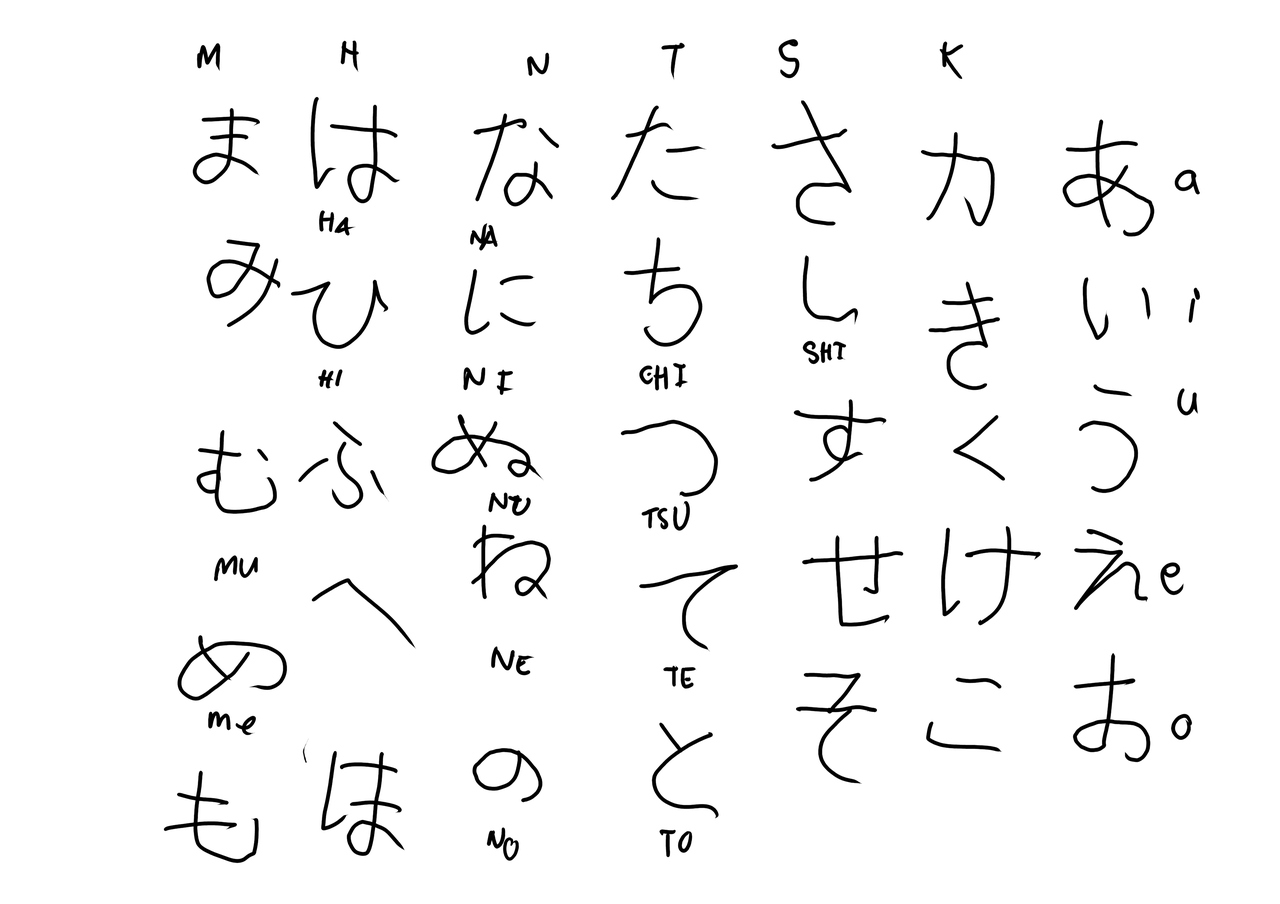 M H N T S K
ま は な た さ カ あ a
HA NA
み ひ に ち し き い i
HI N I CHI SHI
む ふ ぬ つ す く う u
NU TSU
MU へ ね て せ け え e
NE TE
め の と そ こ お o
me
も ほ NO TO